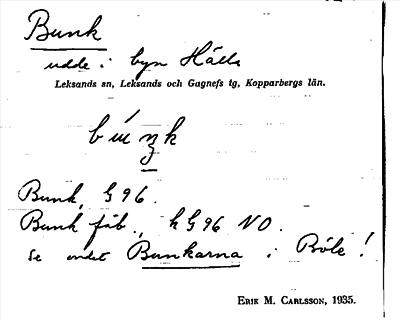 Bunk
udde i byn Hälla
Leksands sn, Leksands och Gagnefs tg, Kopparbergs län.
Bunk, G 96.
Bunk fäb., kG 96 NO.
Se ordet Bunkarna i Böle!
ERIK M. CARLSSON, 1935.